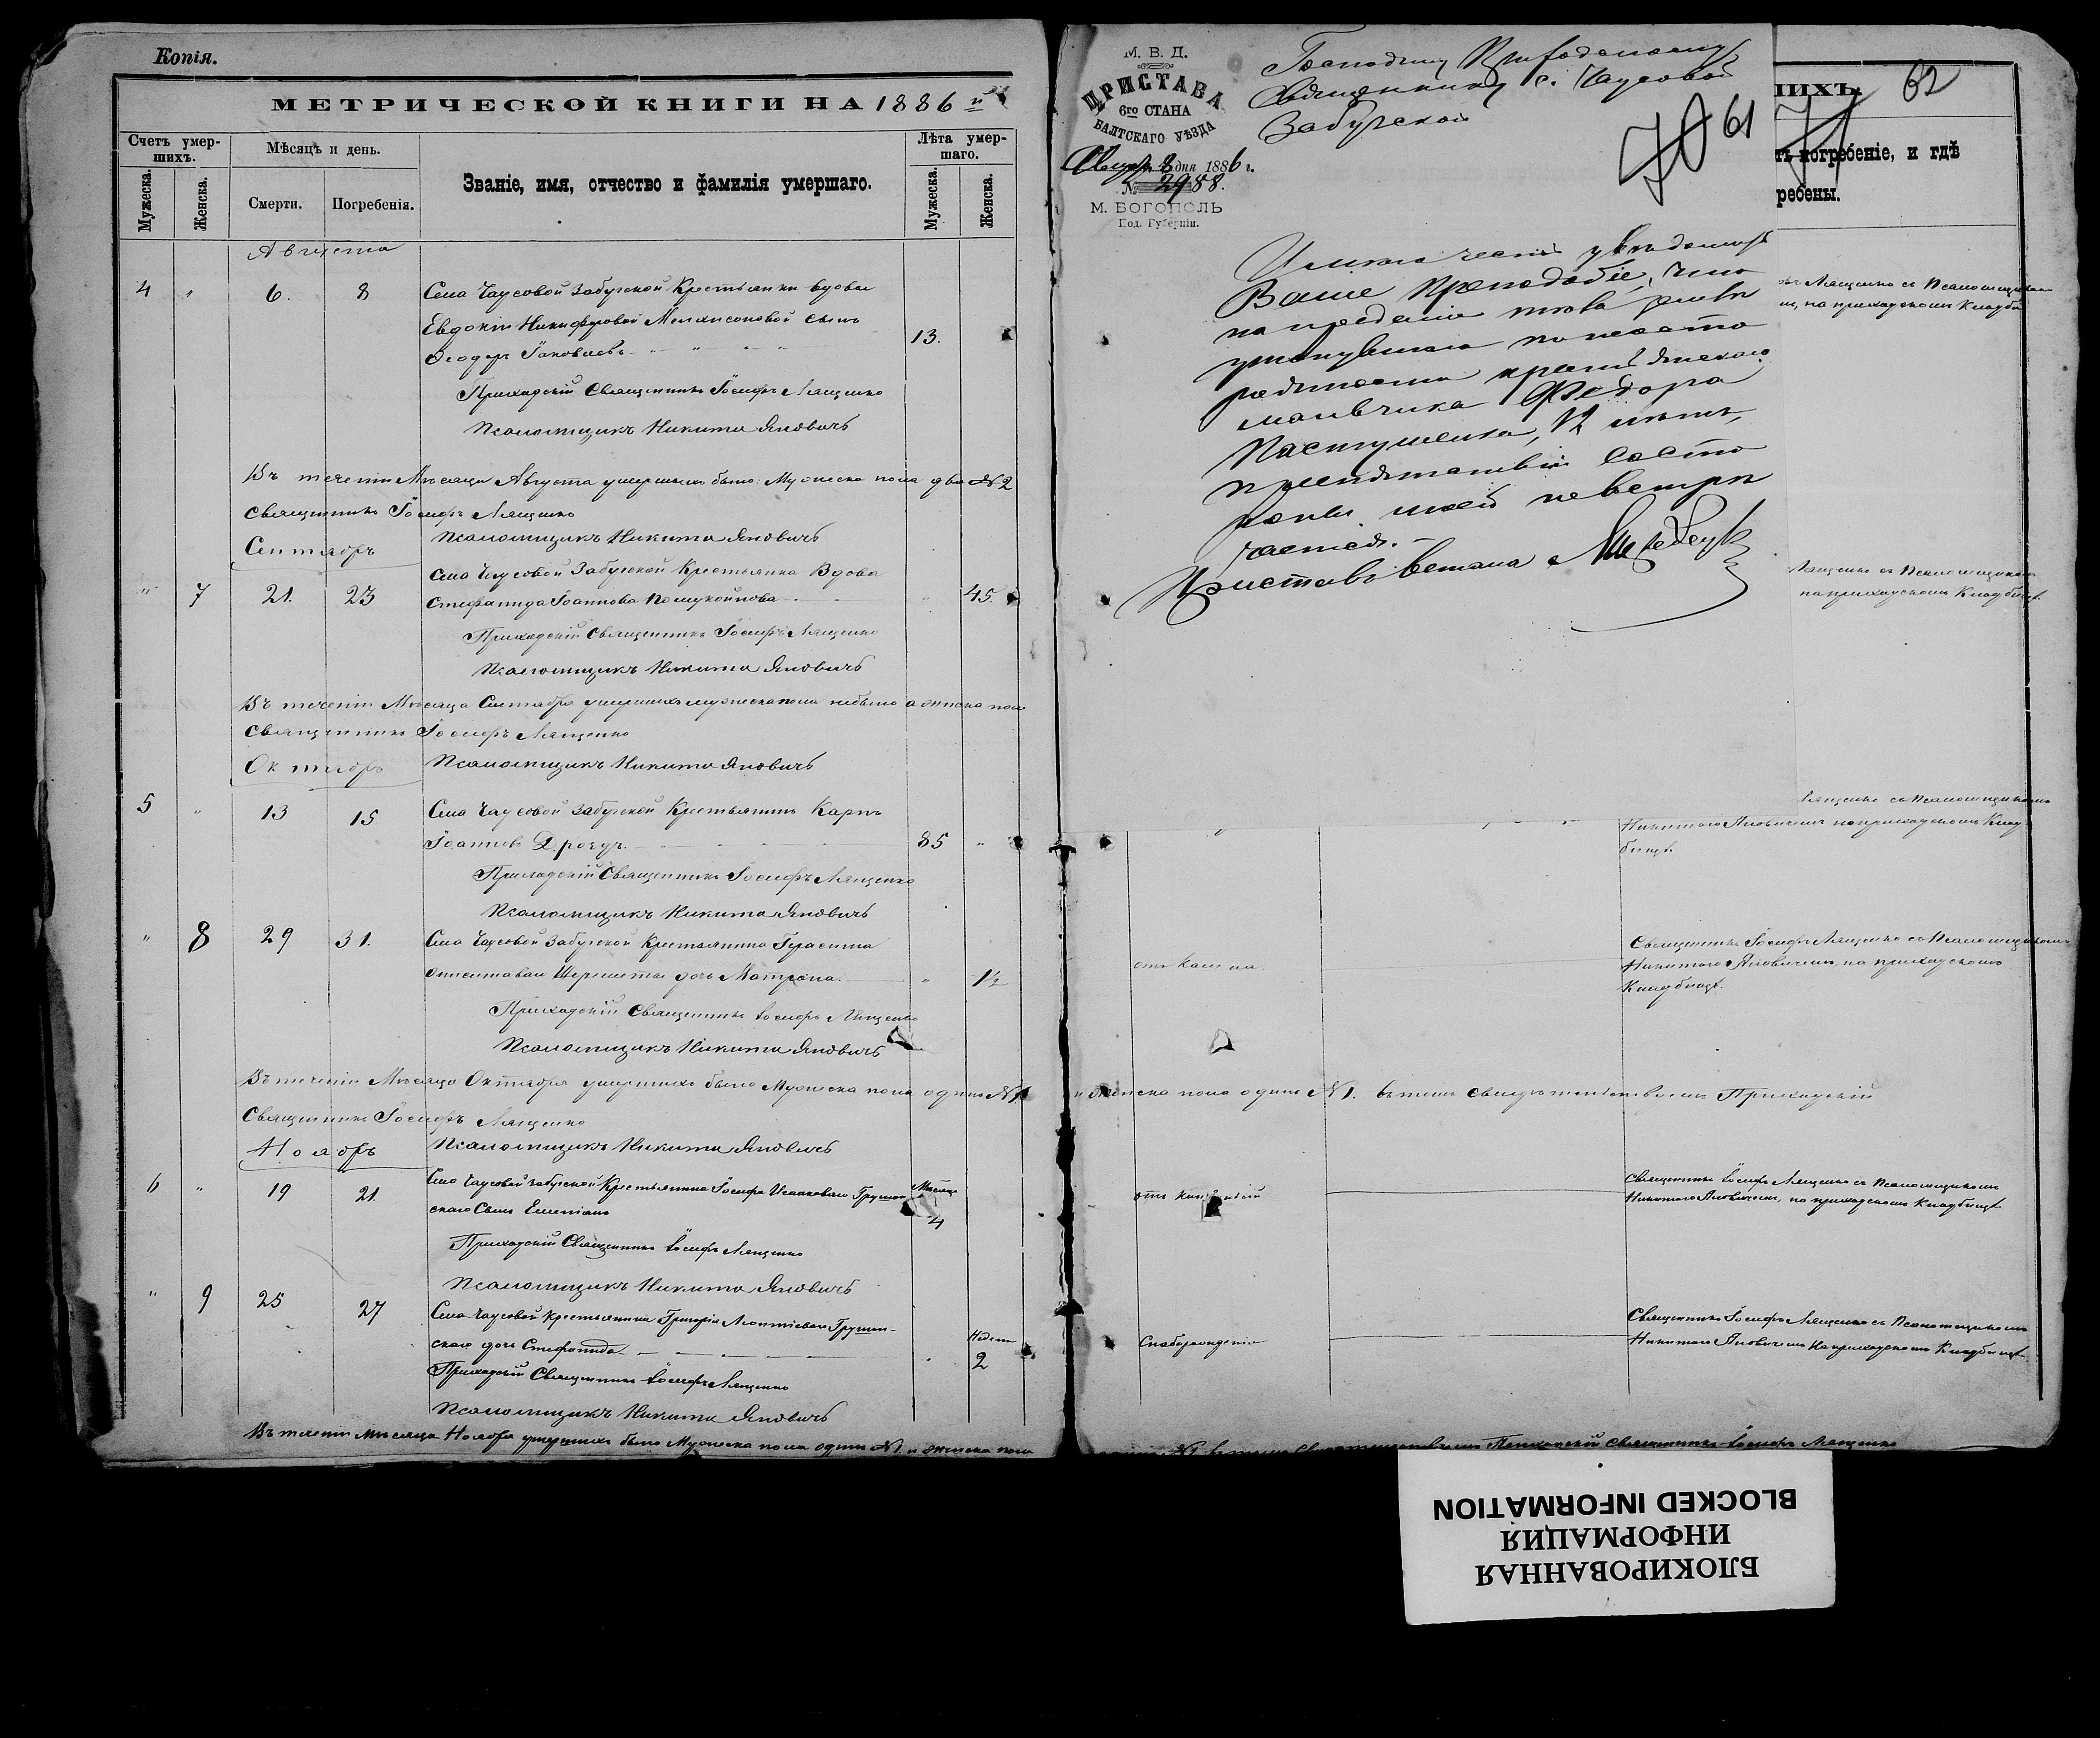 Копія.
МЕТРИЧЕСКОЙ КНИГИ НА 1886 й
Счетъ умер-
шихъ.
Мѣсяцъ и день.
Званіе, имя, отчество и фамилія умершаго.
Лѣта умер-
шаго.
Мужеска.
Женска.
Смерти.
Погребенія.
Мужеска.
Женска.
Августа
4 " 6. 8 Села Чаусовой Забугской Крестьянки вдовы
Евдокіи Никифоровой сынъ
Ѳеодоръ Іаковлевъ 13.
Приходскій Священникъ Іосифъ Лященко
Псаломщикъ Никита Яновичъ
Въ теченіи Мѣсяца Августа умершихъ было: Мужеска пола два № 2
Священникъ Іосифъ Лященко
Псаломщикъ Никита Яновичъ
Сентябрь
" 7 21. 23 Села Чаусовой Забугской Крестьянка Вдова
Стефанида Іоаннова " 45.
Приходскій Священникъ Іосифъ Лященко
Псаломщикъ Никита Яновичъ
Въ теченіи Мѣсяца Сентября умершихъ мужеска пола небыло а женска пола
Священникъ Іосифъ Лященко
Псаломщикъ Никита Яновичъ
Октябрь
5 " 13 15 Села Чаусовой Забугской Крестьянинъ Карпъ
Іоанновъ Дрогуръ. 85 "
Приходскій Священникъ Іосифъ Лященко
Псаломщикъ Никита Яновичъ
" 8 29 31. Села Чаусовой Забугской Крестьянина Герасима
дочь Матрона. " 1½
Приходскій Священникъ Іосифъ Лященко
Псаломщикъ Никита Яновичъ
Въ теченіи Мѣсяца Октября умершихъ было Мужеска пола одинъ № 1
Священникъ Іосифъ Лященко
Псаломщикъ Никита Яновичъ
Ноябрь
6 " 19 21. Села Чаусовой Забугской Крестьянина Іосифа Исааковаго Грушев- Мѣсяц.
скаго Сынъ 4
Приходскій Священникъ Іосифъ Лященко
Псаломщикъ Никита Яновичъ
" 9 25 27 Села Чаусовой Крестьянина Григорія Леонтіеваго Грушев-
скаго дочь Стефанида Недели 2
Приходскій Священникъ Іосифъ Лященко
Псаломщикъ Никита Яновичъ
Въ теченіи мѣсяца Ноября умершихъ было Мужеска пола одинъ № 1 и женска пола
М. В. Д.
ПРИСТАВА
6го СТАНА
БАЛТСКАГО УѢЗДА
8 дня 1886 г.
№ 2988.
М. БОГОПОЛЬ
Под. Губерніи.
Господину Приходскому
Священнику с. Чаусовой
Забугской
70 61
Имѣю честь увѣдомить
Ваше Преподобіе, что
на преданіе тѣла землѣ
утонувшаго
крестьянскаго
мальчика Федора
Пастушенка, 12 лѣтъ,
препятствія съ сто
роны моей не встрѣ
чается.
Приставъ 6 стана
ШИХЪ.
71 62
погребеніе, и гдѣ
ребены.
Лященко съ Псаломщикомъ
на приходскомъ Кладби
Лященко съ Псаломщикомъ
на приходскомъ Кладбищѣ.
Лященко съ Псаломщикомъ
Никитою Яновичемъ на приходскомъ Клад
бищѣ.
отъ Кашля
Священникъ Іосифъ Лященко съ Псаломщикомъ
Никитою Яновичемъ, на приходскомъ
Кладбищѣ.
и женска пола одинъ № 1. въ томъ свидѣтельствуемъ Приходскій
отъ
Священникъ Іосифъ Лященко съ Псаломщикомъ
Никитою Яновичемъ, на приходскомъ Кладбищѣ
Слаборожденія
Священникъ Іосифъ Лященко съ Псаломщикомъ
Никитою Яновичемъ На приходскомъ Кладбищѣ.
№ 1 въ томъ свидѣтельствуемъ Приходскій Священникъ Іосифъ Лященко
БЛОКИРОВАННАЯ
ИНФОРМАЦИЯ
BLOCKED INFORMATION